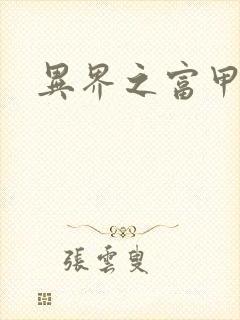 異界之富甲
張雲叟